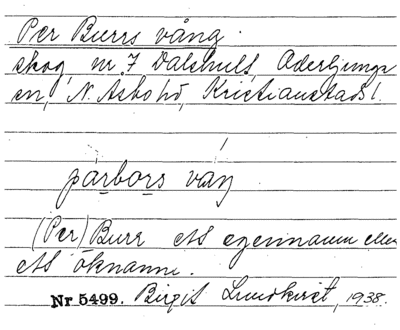 Per Burrs vång.
skog, nr 7 Dalshult, Oderljunga
sn, N. Åsbo hd, Kristianstads l.
pàrbors váŋ
(Per) Burr ett egennamn eller
ett öknamn.
Nr 5499. Birgit Lundkvist, 1938.